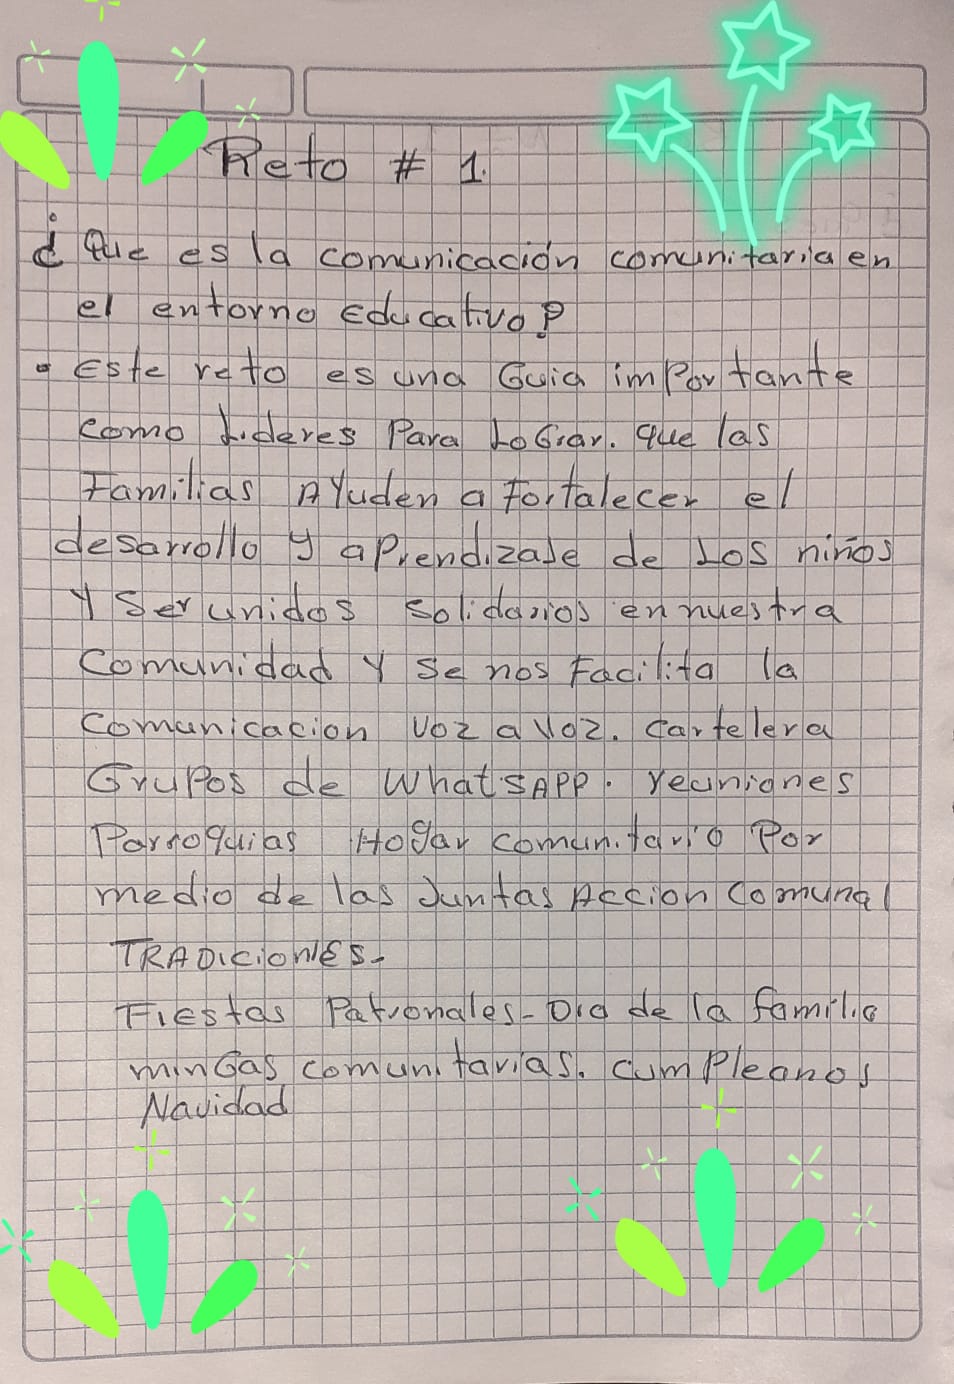 Reto # 1.
¿ Que es la comunicación comunitaria en
el entorno Educativo?
• Este reto es una Guia importante
como Lideres Para LoGrar. que las
Familias Ayuden a fortalecer el
desarrollo y aprendizaje de Los niños
Y Ser unidos solidarios en nuestra
Comunidad Y se nos Facilita la
comunicacion voz a voz. cartelera
Grupos de WhatsAPP. reuniones
Parroquias Hogar comunitario Por
medio de las Juntas Accion Comunal
TRADICIONES-
Fiestas Patronales- Dia de la familia
minGas comunitarias. cumPleanos
Navidad